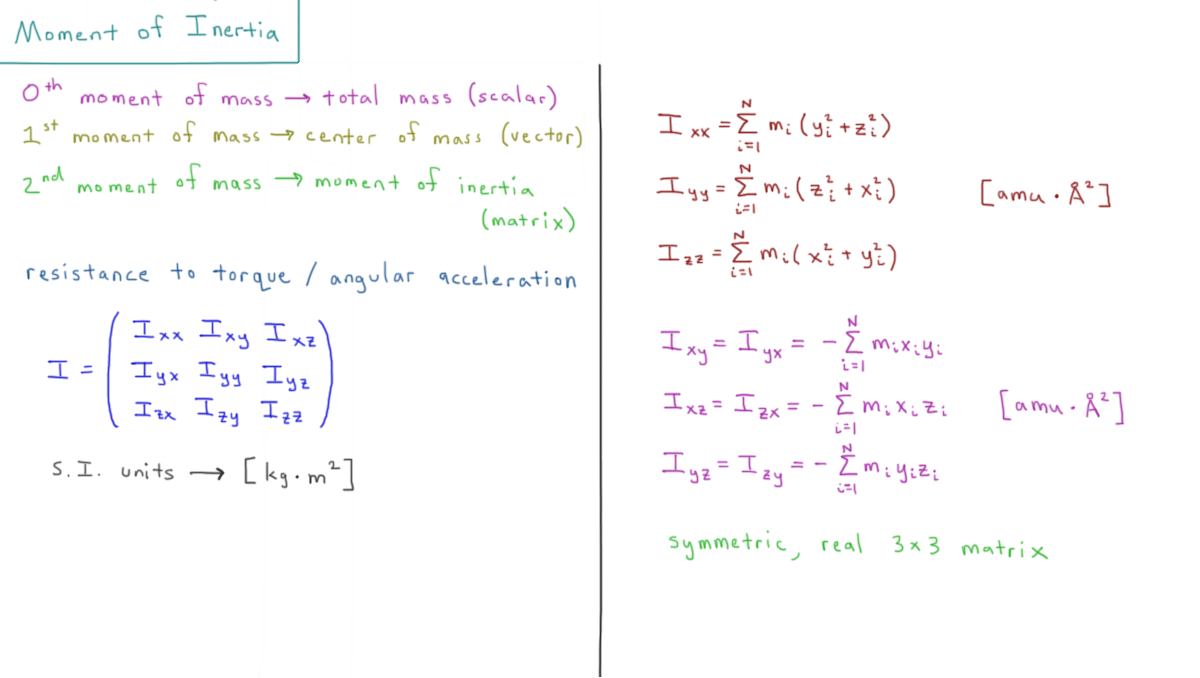 Moment of Inertia
0th moment of mass → total mass (scalar)
1st moment of mass → center of mass (vector)
2nd moment of mass → moment of inertia
(matrix)
resistance to torque / angular acceleration
I = ( Ixx Ixy Ixz
Iyx Iyy Iyz
Izx Izy Izz )
S.I. units → [kg·m²]
Ixx = Σ_{i=1}^{N} mᵢ (yᵢ² + zᵢ²)
Iyy = Σ_{i=1}^{N} mᵢ (zᵢ² + xᵢ²) [amu · Å²]
Izz = Σ_{i=1}^{N} mᵢ (xᵢ² + yᵢ²)
Ixy = Iyx = - Σ_{i=1}^{N} mᵢxᵢyᵢ
Ixz = Izx = - Σ_{i=1}^{N} mᵢxᵢzᵢ [amu · Å²]
Iyz = Izy = - Σ_{i=1}^{N} mᵢyᵢzᵢ
symmetric, real 3x3 matrix